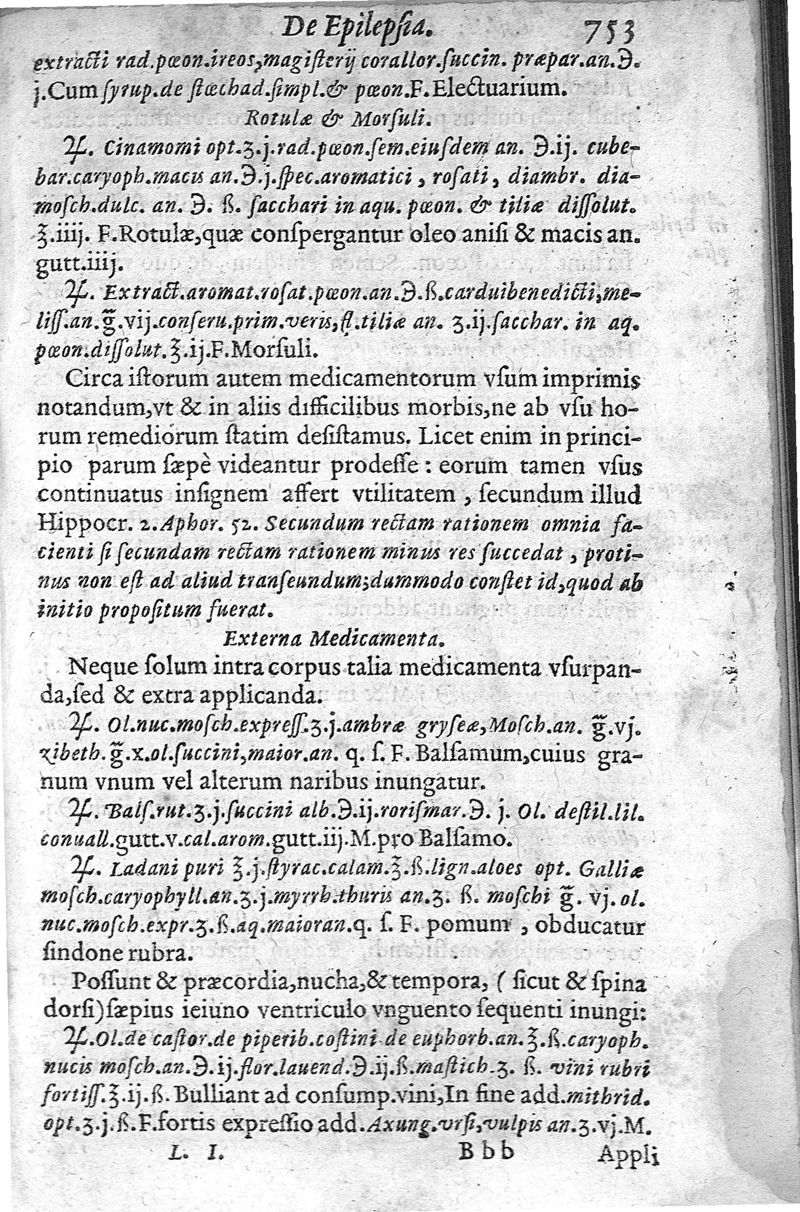 De Epilepſia. 753
extracti rad.pœon.ireos,magiſterij corallor.ſuccin. præpar.an.℈.
j.Cum ſyrup.de ſtœchad.ſimpl.& pœon.F.Electuarium.
Rotulæ & Morſuli.
♃. Cinamomi opt.ʒ.j.rad.pœon.ſem.eiuſdem an. ℈.ij. cube-
bar.caryoph.macis an.℈.j.ſpec.aromatici, roſati, diambr. dia-
moſch.dulc. an. ℈. ß. ſacchari in aqu. pœon. & tiliæ diſſolut.
℥.iiij. F.Rotulæ,quæ conſpergantur oleo aniſi & macis an.
gutt.iiij.
♃. Extract.aromat.roſat.pœon.an.℈.ß.carduibenedicti,me-
liſſ.an.g̃.vij.conſeru.prim.veris,fl.tiliæ an. ʒ.ij.ſacchar. in aq.
pœon.diſſolut.℥.ij.F.Morſuli.
Circa iſtorum autem medicamentorum vſum imprimis
notandum,vt & in aliis difficilibus morbis,ne ab vſu ho-
rum remediorum ſtatim deſiſtamus. Licet enim in princi-
pio parum ſæpè videantur prodeſſe : eorum tamen vſus
continuatus inſignem affert vtilitatem , ſecundum illud
Hippocr. 2.Aphor. 52. Secundum rectam rationem omnia fa-
cienti ſi ſecundam rectam rationem minus res ſuccedat , proti-
nus non eſt ad aliud tranſeundum;dummodo conſtet id,quod ab
initio propoſitum fuerat.
Externa Medicamenta.
Neque ſolum intra corpus talia medicamenta vſurpan-
da,ſed & extra applicanda.
♃. Ol.nuc.moſch.expreſſ.ʒ.j.ambræ gryſeæ,Moſch.an. g̃.vj.
zibeth.g̃.x.ol.ſuccini,maior.an. q. ſ. F. Balſamum,cuius gra-
num vnum vel alterum naribus inungatur.
♃. Balſ.rut.ʒ.j.ſuccini alb.℈.ij.roriſmar.℈. j. Ol. deſtil.lil.
conuall.gutt.v.cal.arom.gutt.iij.M.pro Balſamo.
♃. Ladani puri ℥.j.ſtyrac.calam.℥.ß.lign.aloes opt. Galliæ
moſch.caryophyll.an.ʒ.j.myrrh.thuris an.ʒ. ß. moſchi g̃. vj.ol.
nuc.moſch.expr.ʒ.ß.aq.maioran.q. ſ. F. pomum , obducatur
ſindone rubra.
Poſſunt & præcordia,nucha,& tempora, ( ſicut & ſpina
dorſi)ſæpius ieiuno ventriculo vnguento ſequenti inungi:
♃.Ol.de caſtor.de piperib.coſtini de euphorb.an.℥.ß.caryoph.
nucis moſch.an.℈.ij.flor.lauend.℈.ij.ß.maſtich.ʒ. ß. vini rubri
fortiſſ.℥.ij.ß. Bulliant ad conſump.vini,In fine add.mithrid.
opt.ʒ.j.ß.F.fortis expreſſio add.Axung.vrſi,vulpis an.ʒ.vj.M.
L. I. Bbb Appli